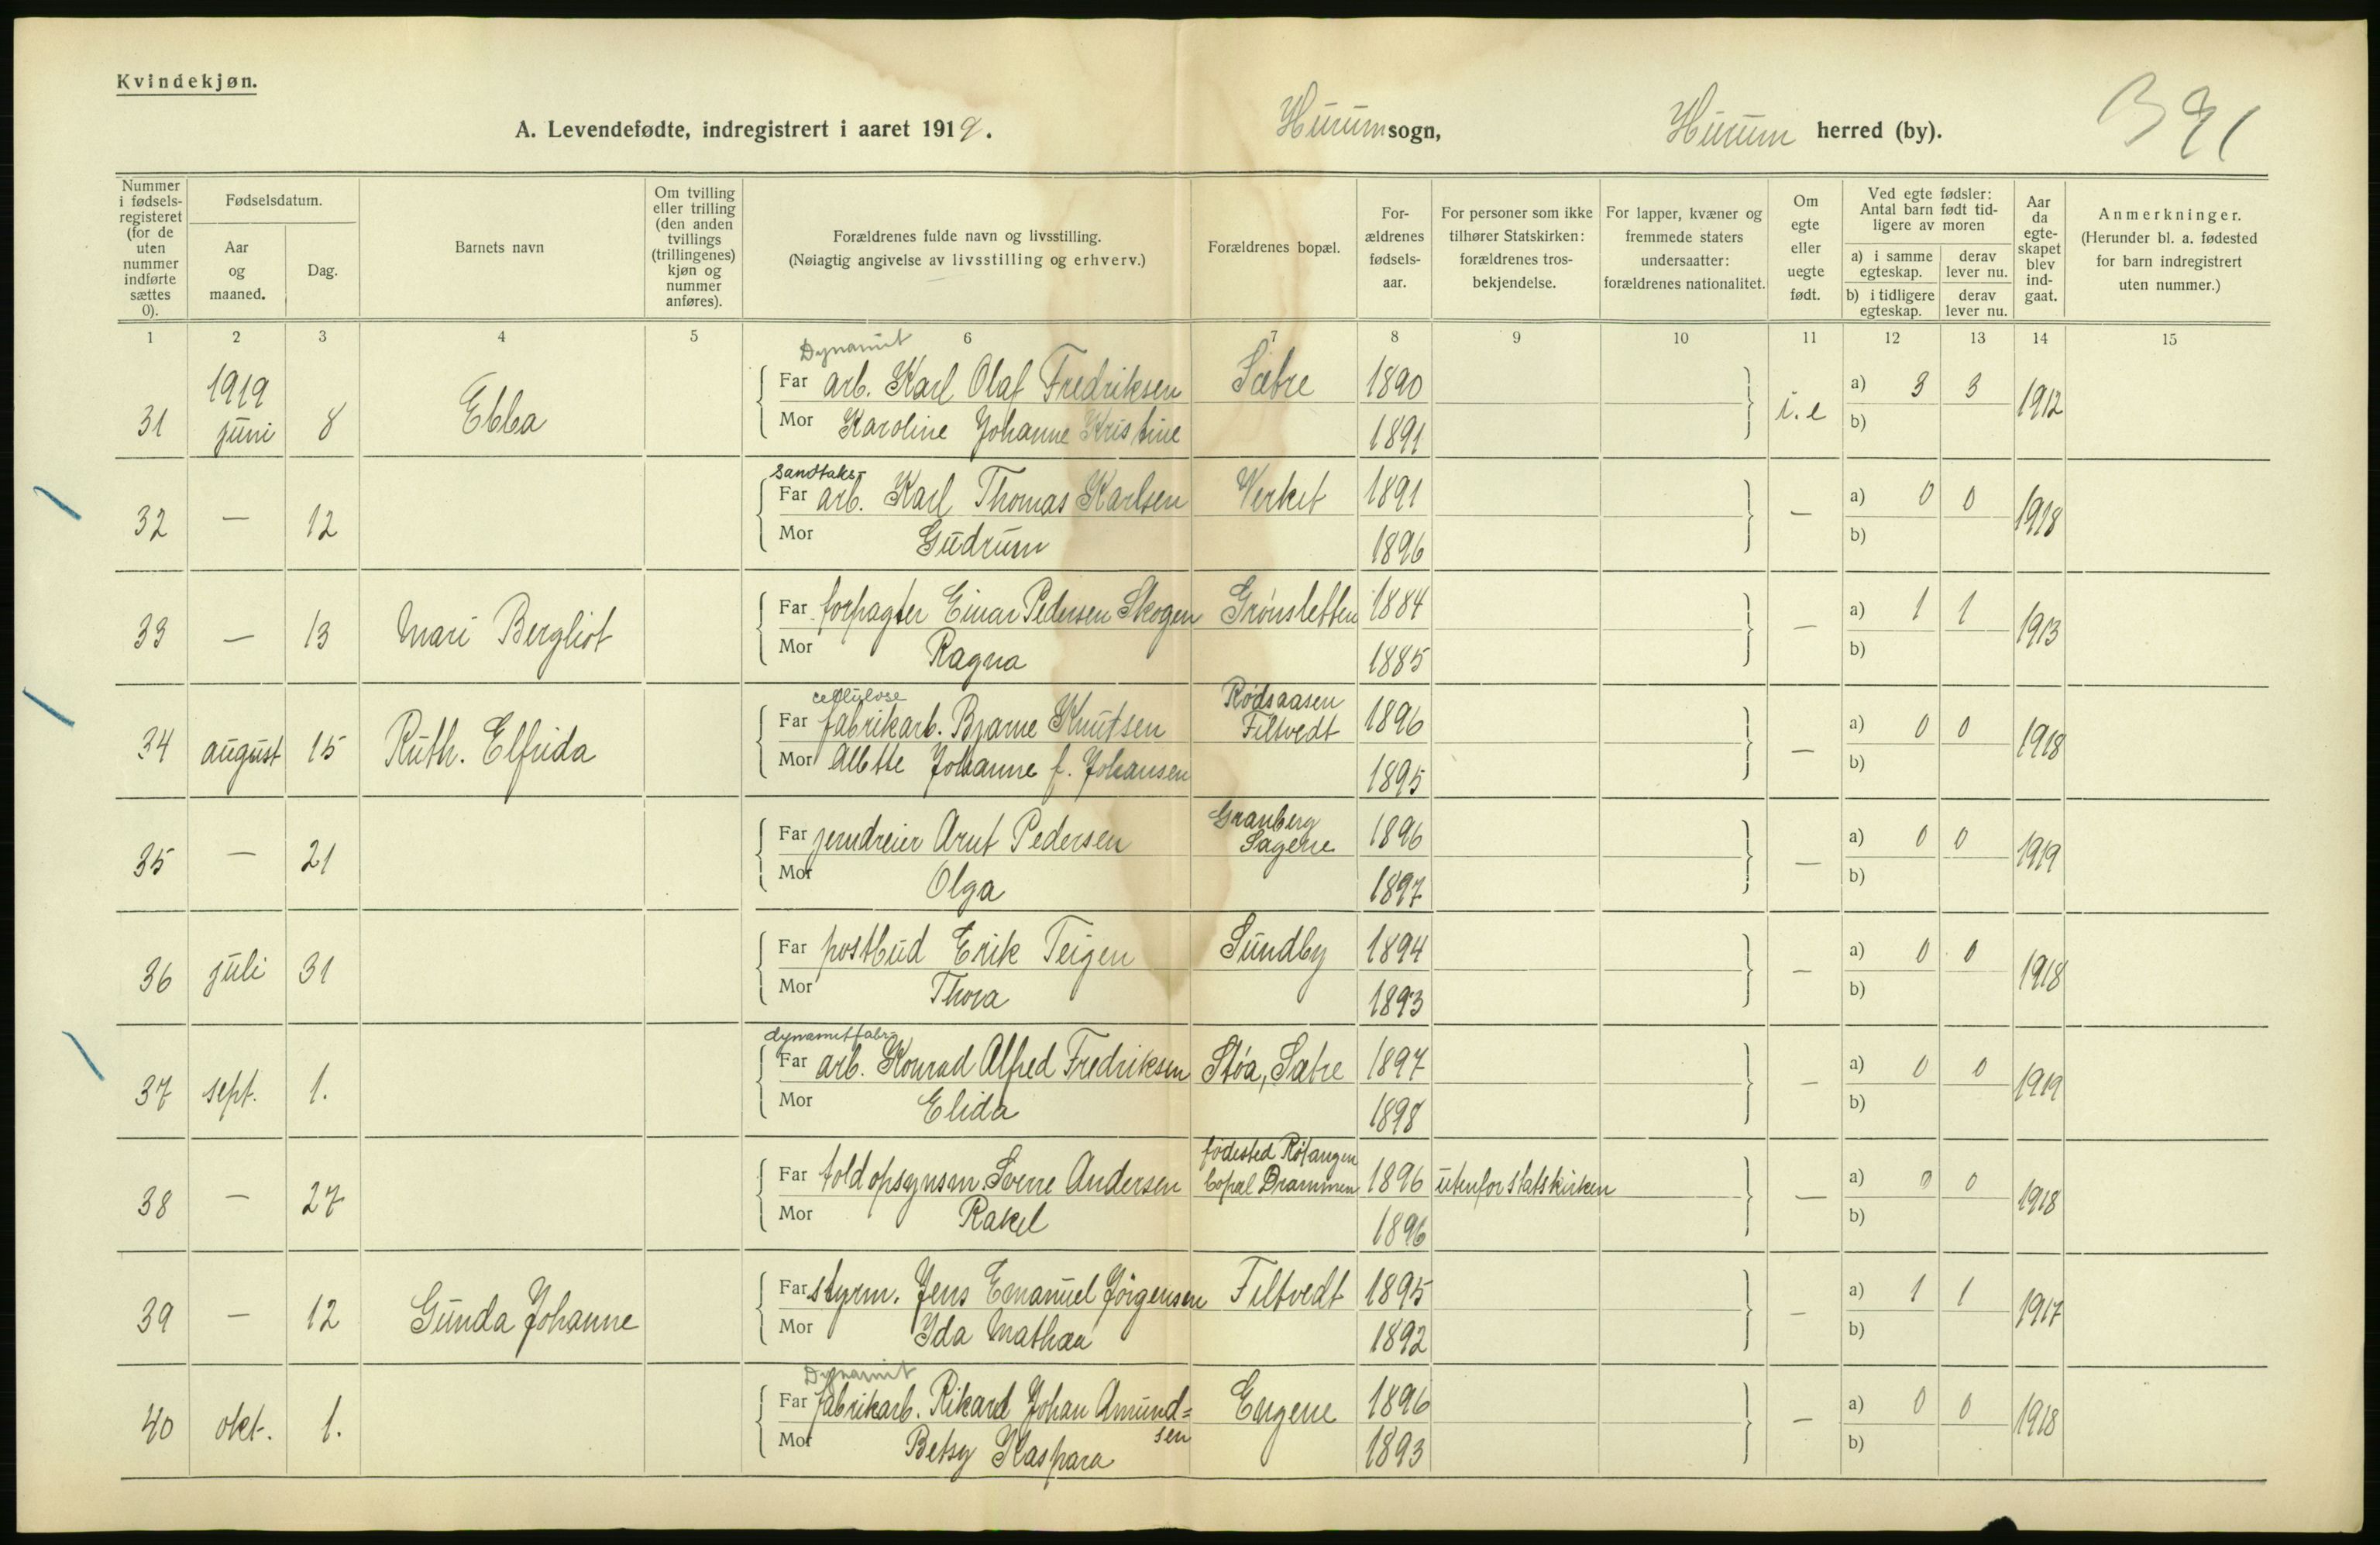 Kvindekjøn.
A. Levendefødte, indregistrert i aaret 1919. Hurum sogn, Hurum herred (by).
Nummer i fødselsregisteret (for de uten nummer indførte sættes 0).
Fødselsdatum.
Aar og maaned.
Dag.
Barnets navn
Om tvilling eller trilling (den anden tvillings (trillingenes) kjøn og nummer anføres).
Forældrenes fulde navn og livsstilling.
(Nøiagtig angivelse av livsstilling og erhverv.)
Forældrenes bopæl.
Forældrenes fødselsaar.
For personer som ikke tilhører Statskirken: forældrenes trosbekjendelse.
For lapper, kvæner og fremmede staters undersaatter: forældrenes nationalitet.
Om egte eller uegte født.
Ved egte fødsler: Antal barn født tidligere av moren
a) i samme egteskap. derav lever nu.
b) i tidligere egteskap. derav lever nu.
Aar da egteskapet blev indgaat.
Anmerkninger.
(Herunder bl. a. fødested for barn indregistrert uten nummer.)
1 2 3 4 5 6 7 8 9 10 11 12 13 14 15
Dynamit
31 1919 juni 8 Ebba Far arb. Karl Olaf Fredriksen Sætre 1890 i.e a) 3 3 1912
Mor Karoline Johanne Kristine 1891 b)
Sandtaks-
32 — 12 Far arb. Karl Thomas Karlsen Verket 1891 — a) 0 0 1918
Mor Gudrum 1896 b)
33 — 13 Mari Bergliot Far forpagter Einar Pedersen Skogen Grønsletten 1884 — a) 1 1 1913
Mor Ragna 1885 b)
cellulose Rødsaasen
34 august 15 Ruth. Elfrida Far fabrikarb. Bjarne Knutsen Filtvedt 1896 — a) 0 0 1918
Mor Alette Johanne f. Johansen 1895 b)
Granberg
35 — 21 Far jerndreier Arut Pedersen Sagene 1896 — a) 0 0 1919
Mor Olga 1897 b)
36 juli 31 Far postbud Erik Teigen Sundby 1894 — a) 0 0 1918
Mor Thora 1893 b)
dynamitfabr-
37 sept. 1. Far arb. Konrad Alfred Fredriksen Støa, Sætre 1897 — a) 0 0 1919
Mor Elida 1898 b)
fødested Røtangen
38 — 27 Far toldopsynsm. Sverre Andersen bopæl Drammen 1896 utenfor statskirken — a) 0 0 1918
Mor Rakel 1896 b)
39 — 12 Gunda Johanne Far styrm. Jens Emanuel Jörgensen Filtvedt 1895 — a) 1 1 1917
Mor Ida Mathea 1892 b)
Dynamit
40 okt. 1. Far fabrikarb. Rikard Johan Amund= Engene 1896 — a) 0 0 1918
sen
Mor Betsy Kaspara 1893 b)